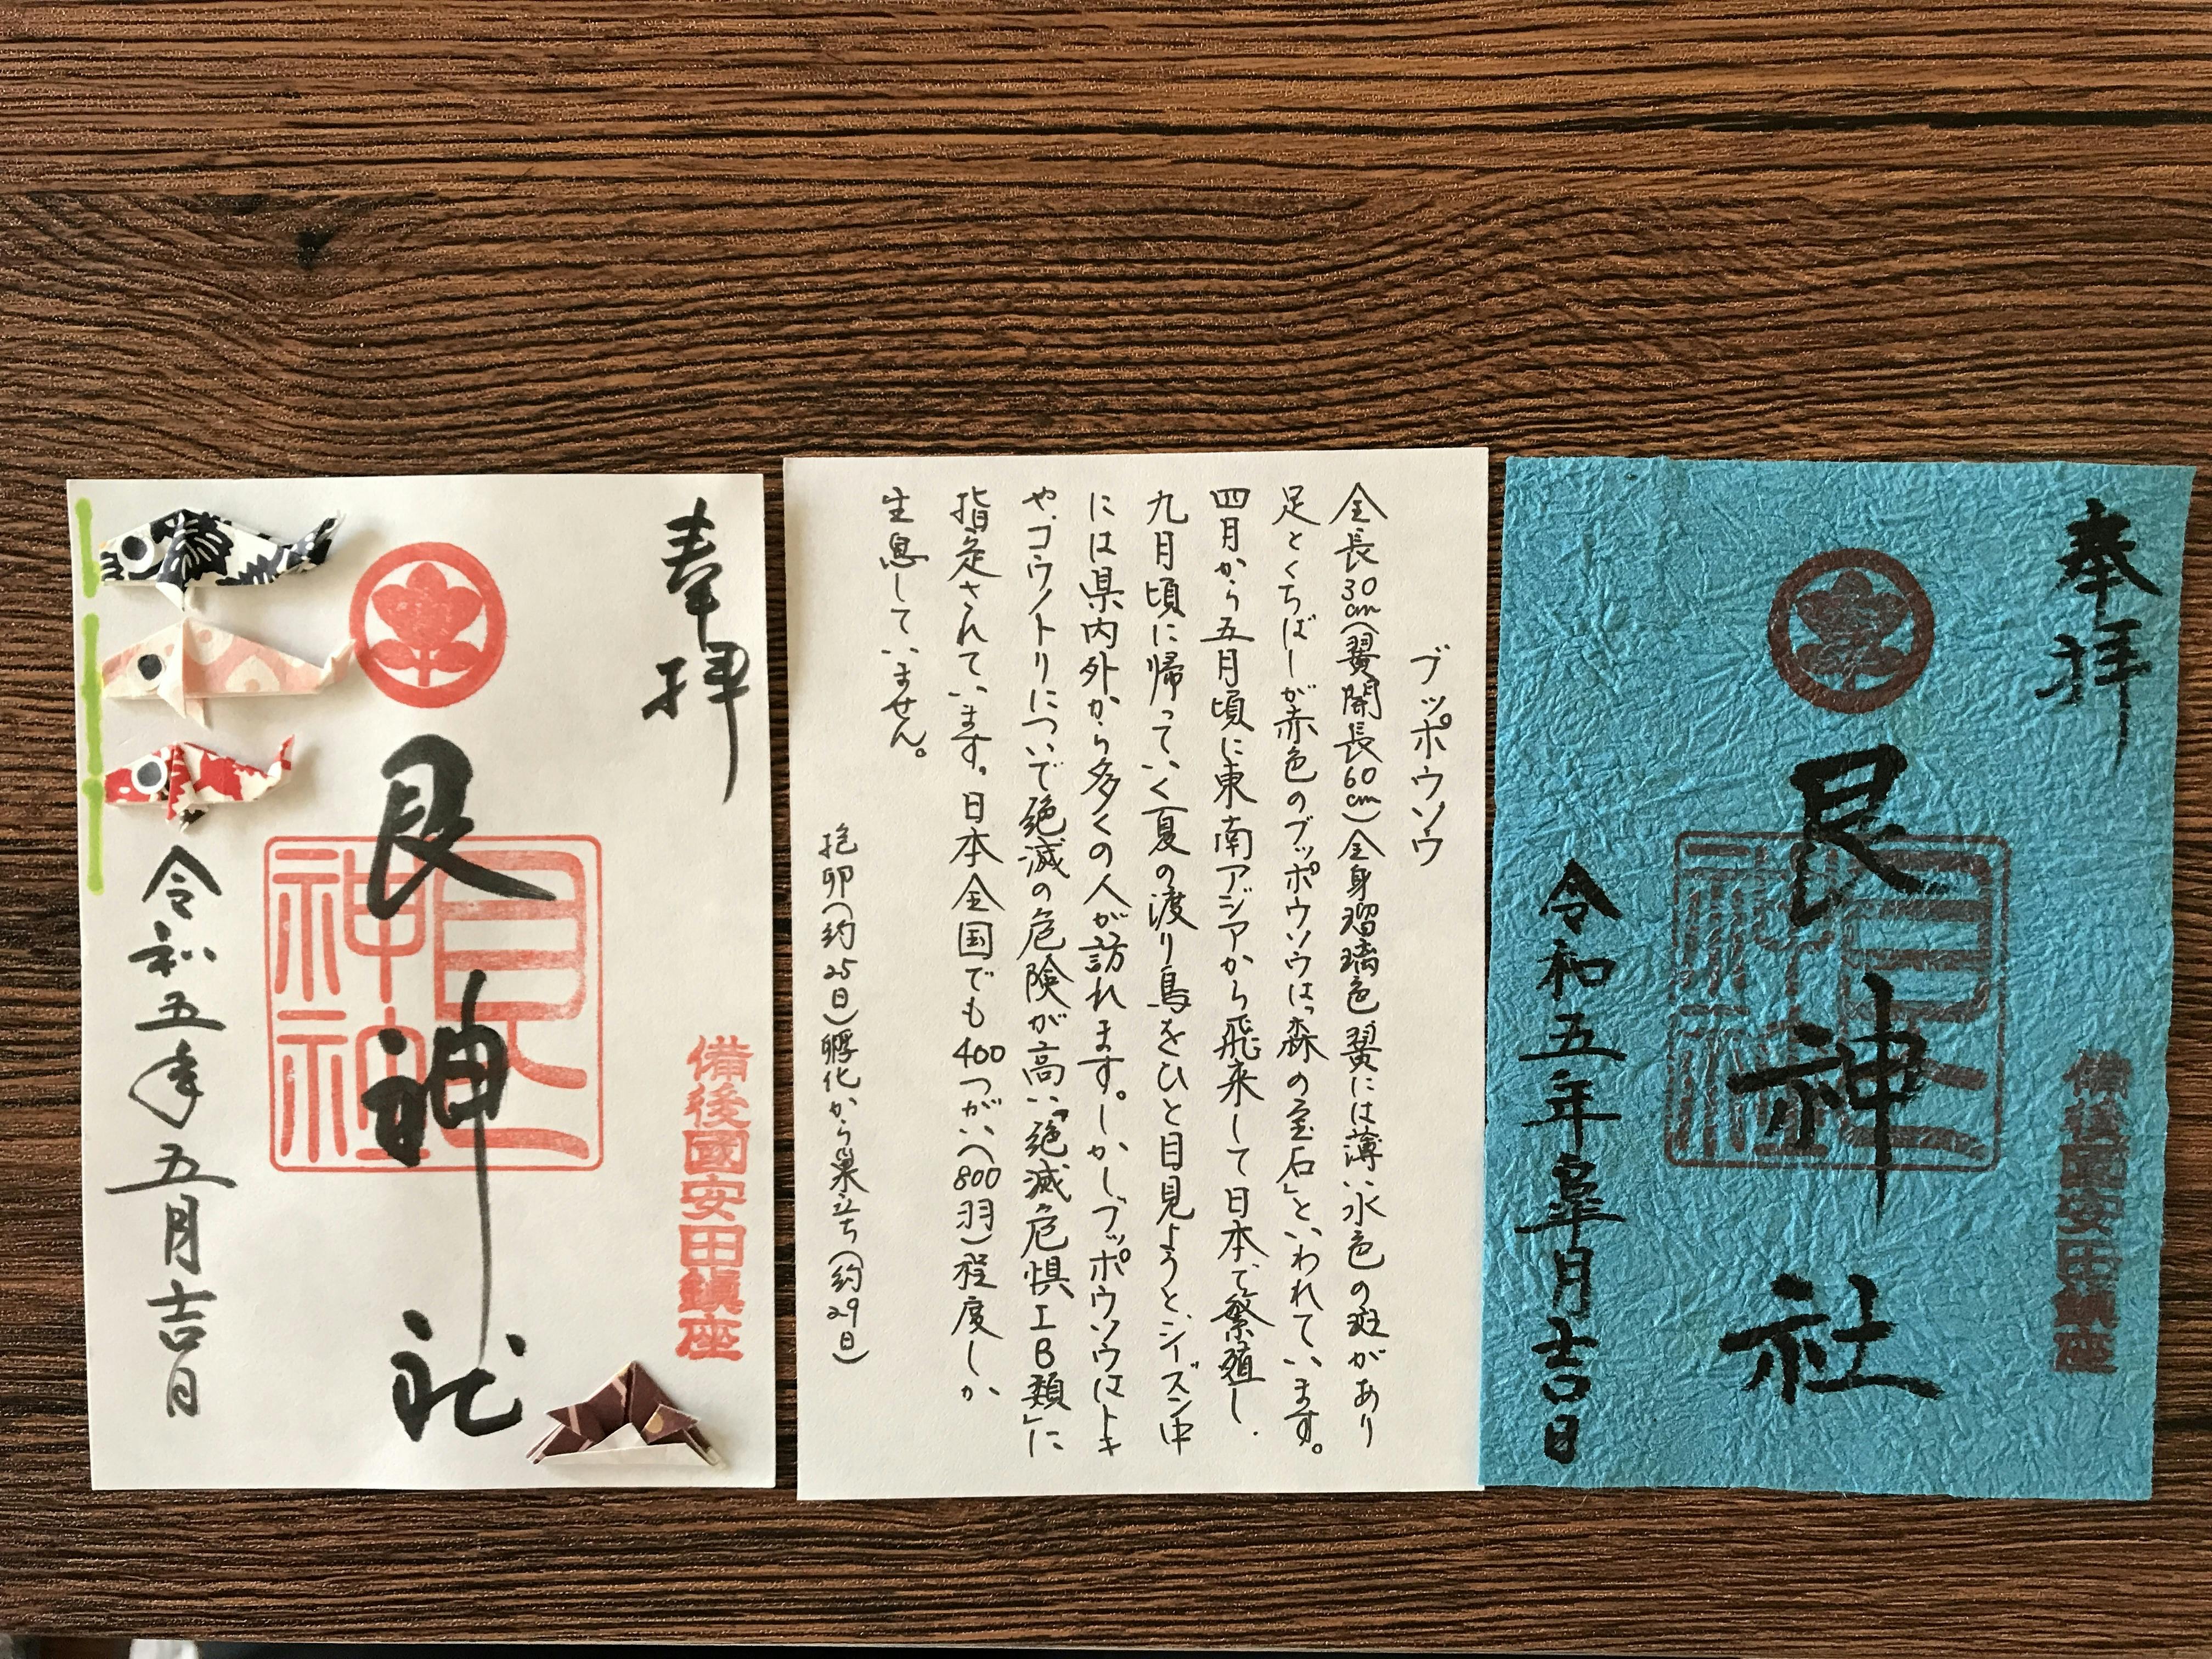 奉拝
艮神社
備後國安田鎮座
艮神社
令和五年五月吉日
ブッポウソウ
全長30cm(翼開長60cm)全身瑠璃色 翼には薄い水色の斑があり
足とくちばしが赤色のブッポウソウは“森の宝石」といわれています。
四月から五月頃に東南アジアから飛来して日本で繁殖し、
九月頃に帰っていく夏の渡り鳥をひと目見ようと、シーズン中
には県内外から多くの人が訪れます。しかしブッポウソウはトキ
や、コウノトリについで絶滅の危険が高い「絶滅危惧ⅠB類」に
指定されています。日本全国でも400つがい(800羽)程度しか
生息していません。
抱卵(約25日)孵化から巣立ち(約29日)
奉拝
艮神社
備後國安田鎮座
艮神社
令和五年皐月吉日